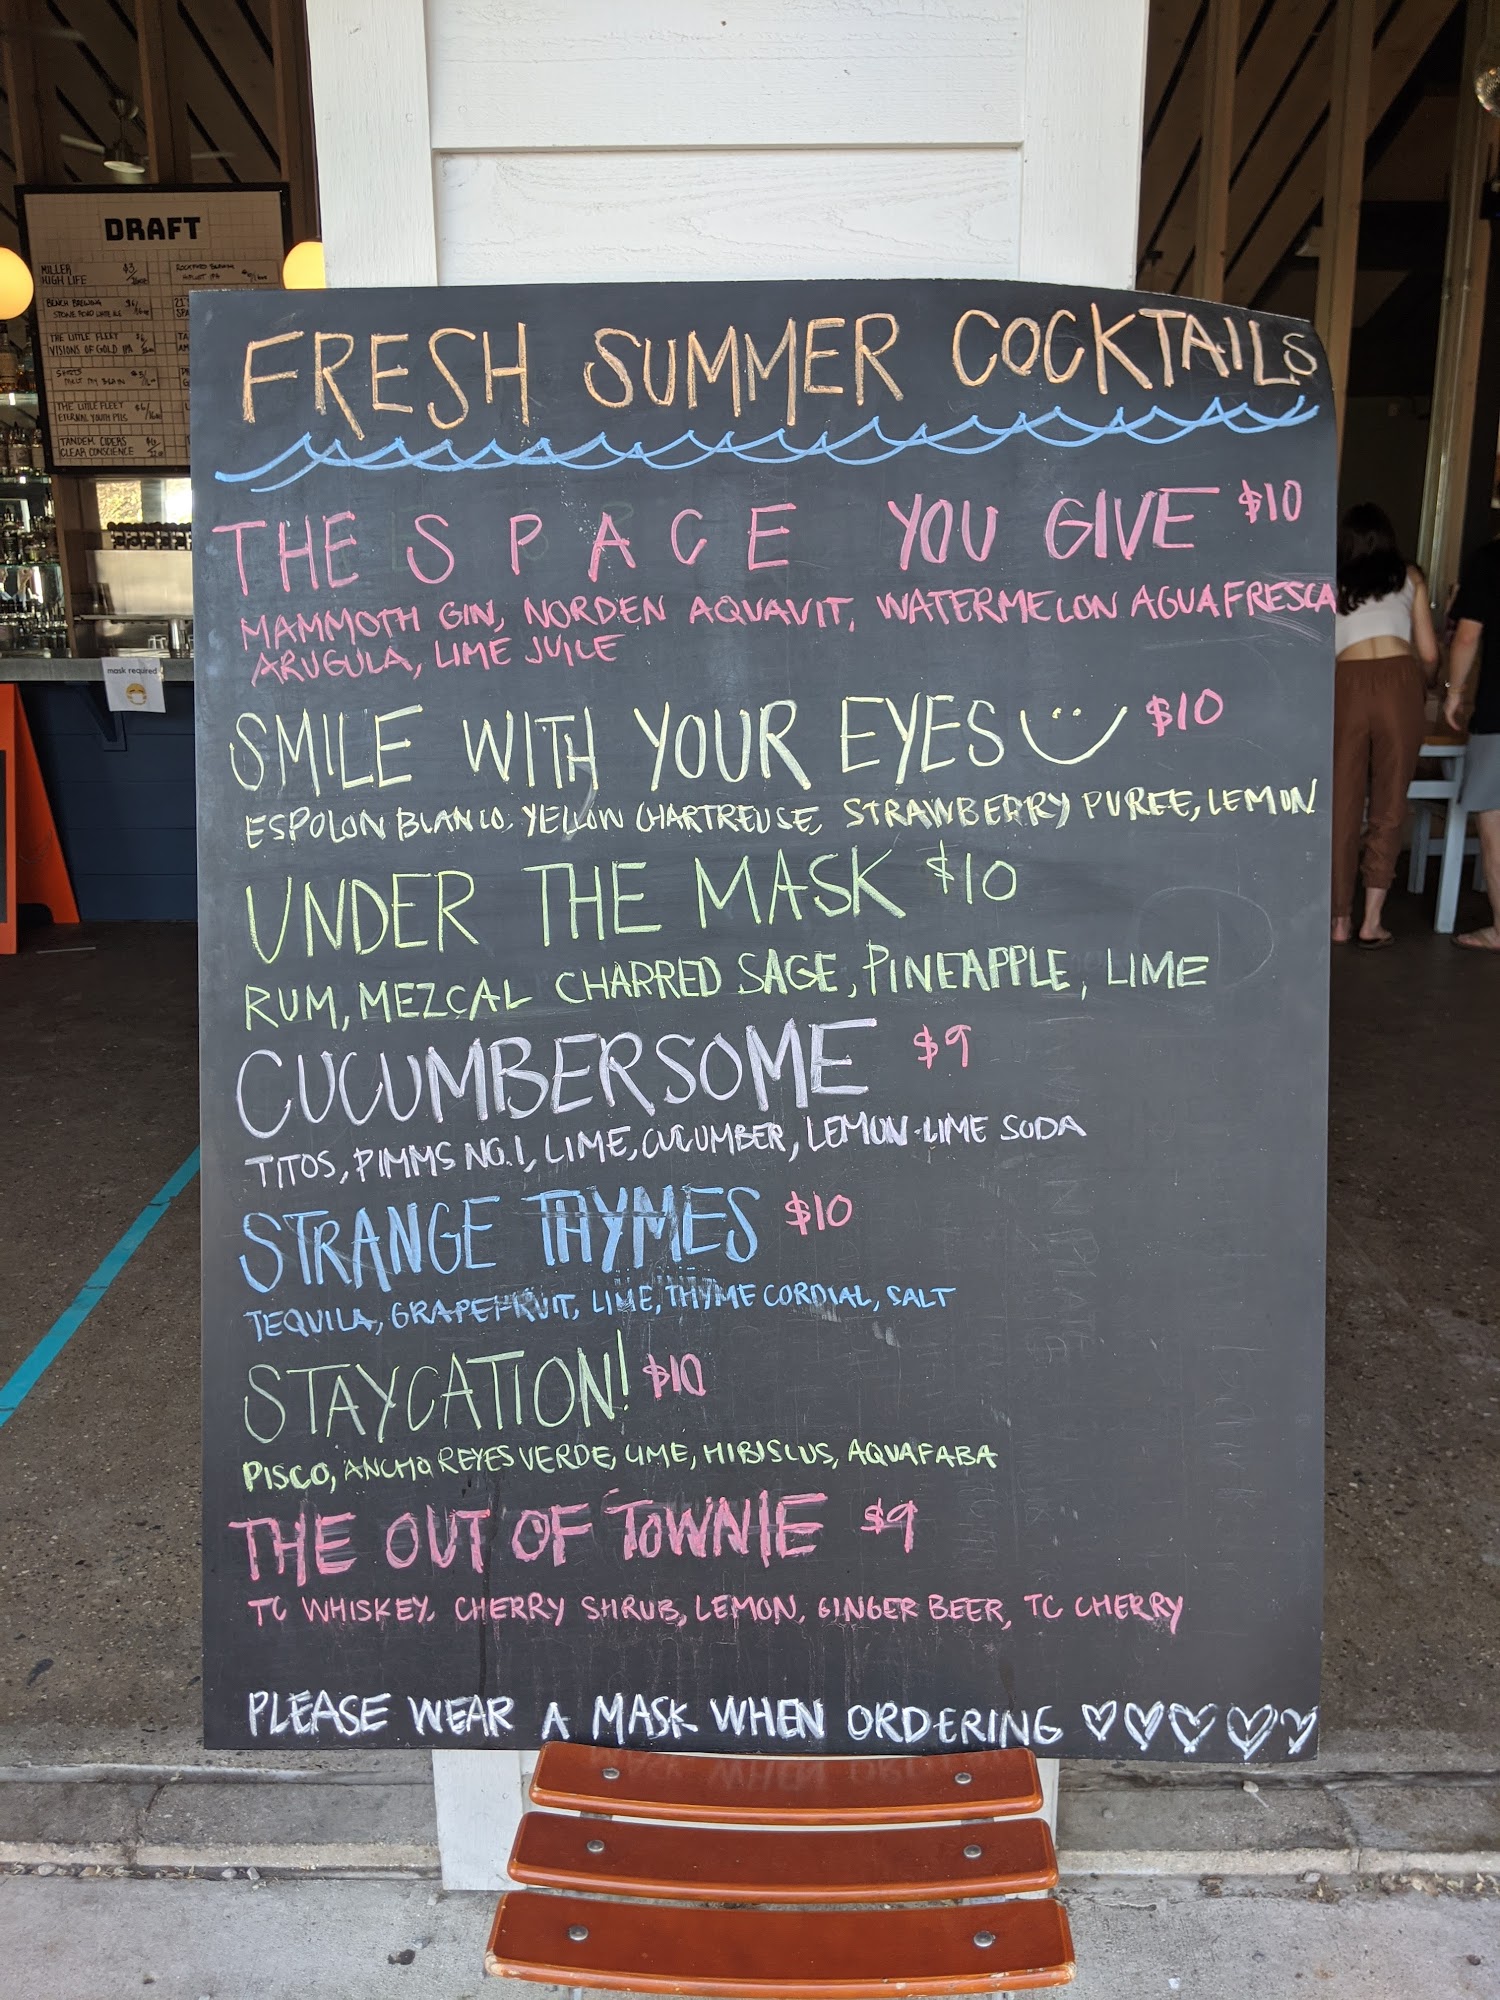 DRAFT
MILLER $3/
HIGH LIFE
BENCH BREWING $6/
THE LITTLE FLEET
VISIONS OF GOLD IPA
THE LITTLE FLEET $6/
ETERNAL YOUTH PILS
TANDEM CIDERS
CLEAR CONSCIENCE
mask required
FRESH SUMMER COCKTAILS
THE SPACE YOU GIVE $10
MAMMOTH GIN, NORDEN AQUAVIT, WATERMELON AGUA FRESCA
ARUGULA, LIME JUICE
SMILE WITH YOUR EYES $10
ESPOLON BLANCO, YELLOW CHARTREUSE, STRAWBERRY PUREE, LEMON
UNDER THE MASK $10
RUM, MEZCAL CHARRED SAGE, PINEAPPLE, LIME
CUCUMBERSOME $9
TITOS, PIMMS NO.1, LIME, CUCUMBER, LEMON-LIME SODA
STRANGE THYMES $10
TEQUILA, GRAPEFRUIT, LIME, THYME CORDIAL, SALT
STAYCATION! $10
PISCO, ANCHO REYES VERDE, LIME, HIBISCUS, AQUAFABA
THE OUT OF TOWNIE $9
TC WHISKEY, CHERRY SHRUB, LEMON, GINGER BEER, TC CHERRY
PLEASE WEAR A MASK WHEN ORDERING ♡♡♡♡♡